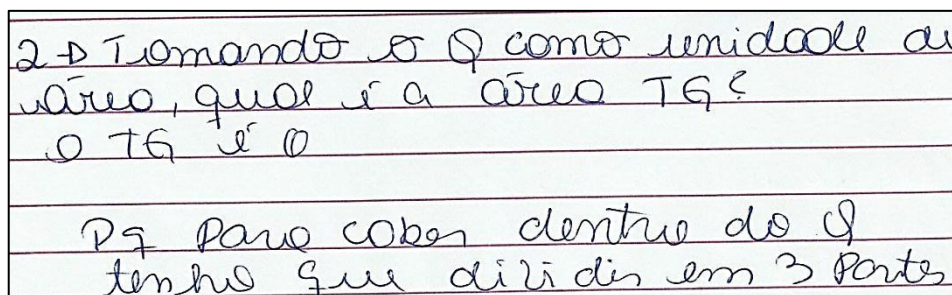 2→ Tomando o Q como unidade de
área, qual é a área TG?
O TG é o
Pq para caber dentro do Q
tenho que dividir em 3 partes